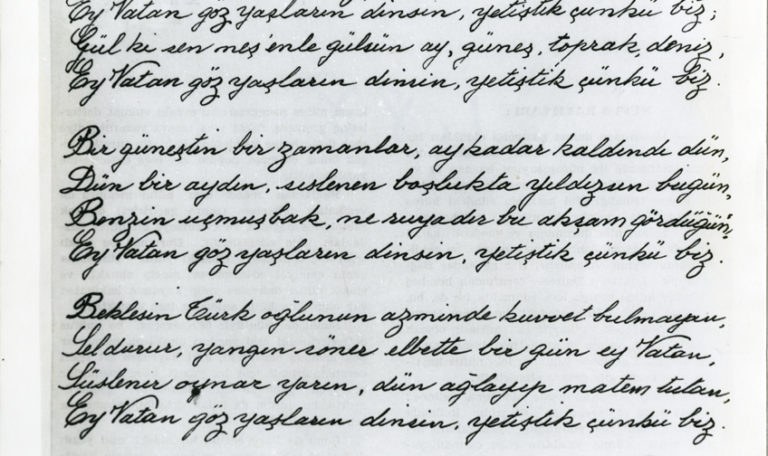 Ey Vatan göz yaşların dinsin, yetiştik çünkü biz;
Gül ki sen neş'enle gülsün ay, güneş, toprak, deniz,
Ey Vatan göz yaşların dinsin, yetiştik çünkü biz.
Bir güneştin bir zamanlar, ay kadar kaldındı dün,
Dün bir aydın, sislenen boşlukta yıldızsın bugün,
Benzin uçmuş bak, ne rüyadır bu akşam gördüğün,
Ey Vatan göz yaşların dinsin, yetiştik çünkü biz.
Beklesin Türk oğlunun azminde kuvvet bulmayan,
Sel durur, yangın söner elbette bir gün ey Vatan,
Süslenir oynar yarın, dün ağlayıp matem tutan,
Ey Vatan göz yaşların dinsin, yetiştik çünkü biz.